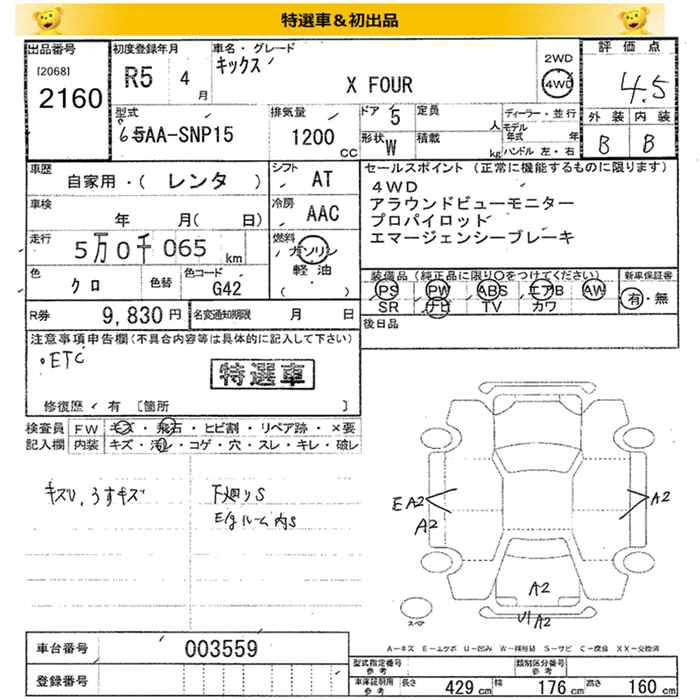 特選車＆初出品
出品番号
[2068]
2160
初度登録年月
R5 4月
車名・グレード
キックス
X FOUR
2WD
4WD
評価点
4.5
外装 内装
B B
型式
6AA-SNP15
排気量
1200 CC
ドア 5
形状 W
定員 人
積載 kg
ディーラー・並行
モデル年式 年
ハンドル 左・右
車歴
自家用・( レンタ )
車検
年 月( 日)
走行
5万0千065 km
色
クロ
色替
色コード
G42
シフト
AT
冷房
AAC
燃料
ガソリン
軽油
( )
セールスポイント (正常に機能するものに限ります)
4WD
アラウンドビューモニター
プロパイロット
エマージェンシーブレーキ
装備品 (純正品に限り〇をつけてください)
PS PW ABS エアB AW
SR ナビ TV カワ
新車保証書
有・無
後日品
R券
9,830円
名変通知期限
月 日
注意事項申告欄 (不具合内容等は具体的に記入して下さい)
・ETC
特選車
修復歴 有 [箇所 ]
検査員 FW キズ・飛石・ヒビ割・リペア跡・×要
記入欄 内装 キズ・汚レ・コゲ・穴・スレ・キレ・破レ
キズU、うすキズ
下廻りS
E/gルーム内S
EA2
A2
A2
A2
U1 A2
スペア
A－キズ E－エクボ U－凹み W－補修跡 S－サビ C－腐蝕 XX－交換済
車台番号
003559
登録番号
型式指定番号 参考
類別区分番号 参考
車庫証明用 参考
長さ 429 cm 幅 176 cm 高さ 160 cm